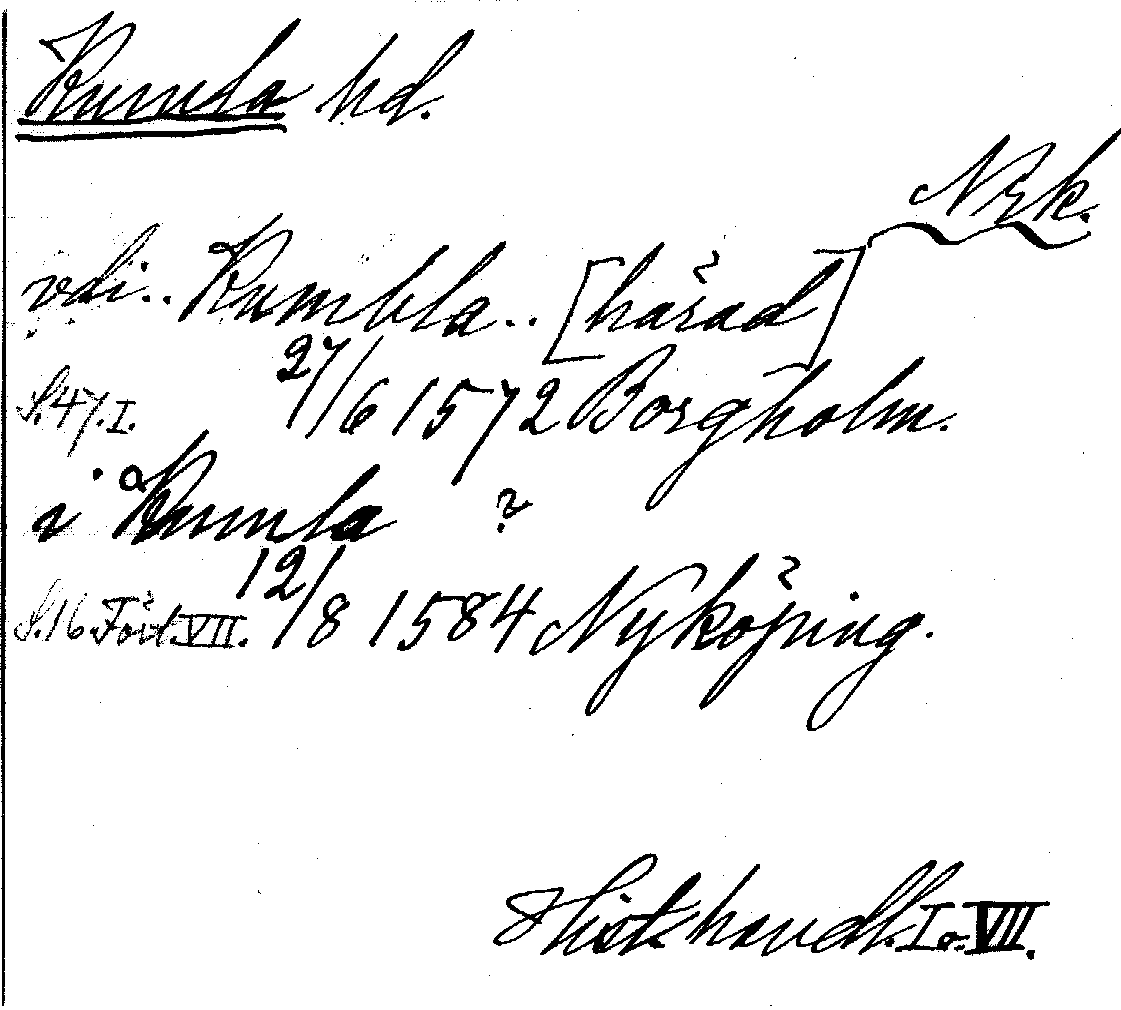 Kumla hd.
Nrk.
vdi.. Kumbla.. [härad]
S.47.I. 27/6 1572 Borgholm.
i Kumla ?
S.16.Fört.VII. 12/8 1584 Nyköping.
Hist. handl. I o. VII.